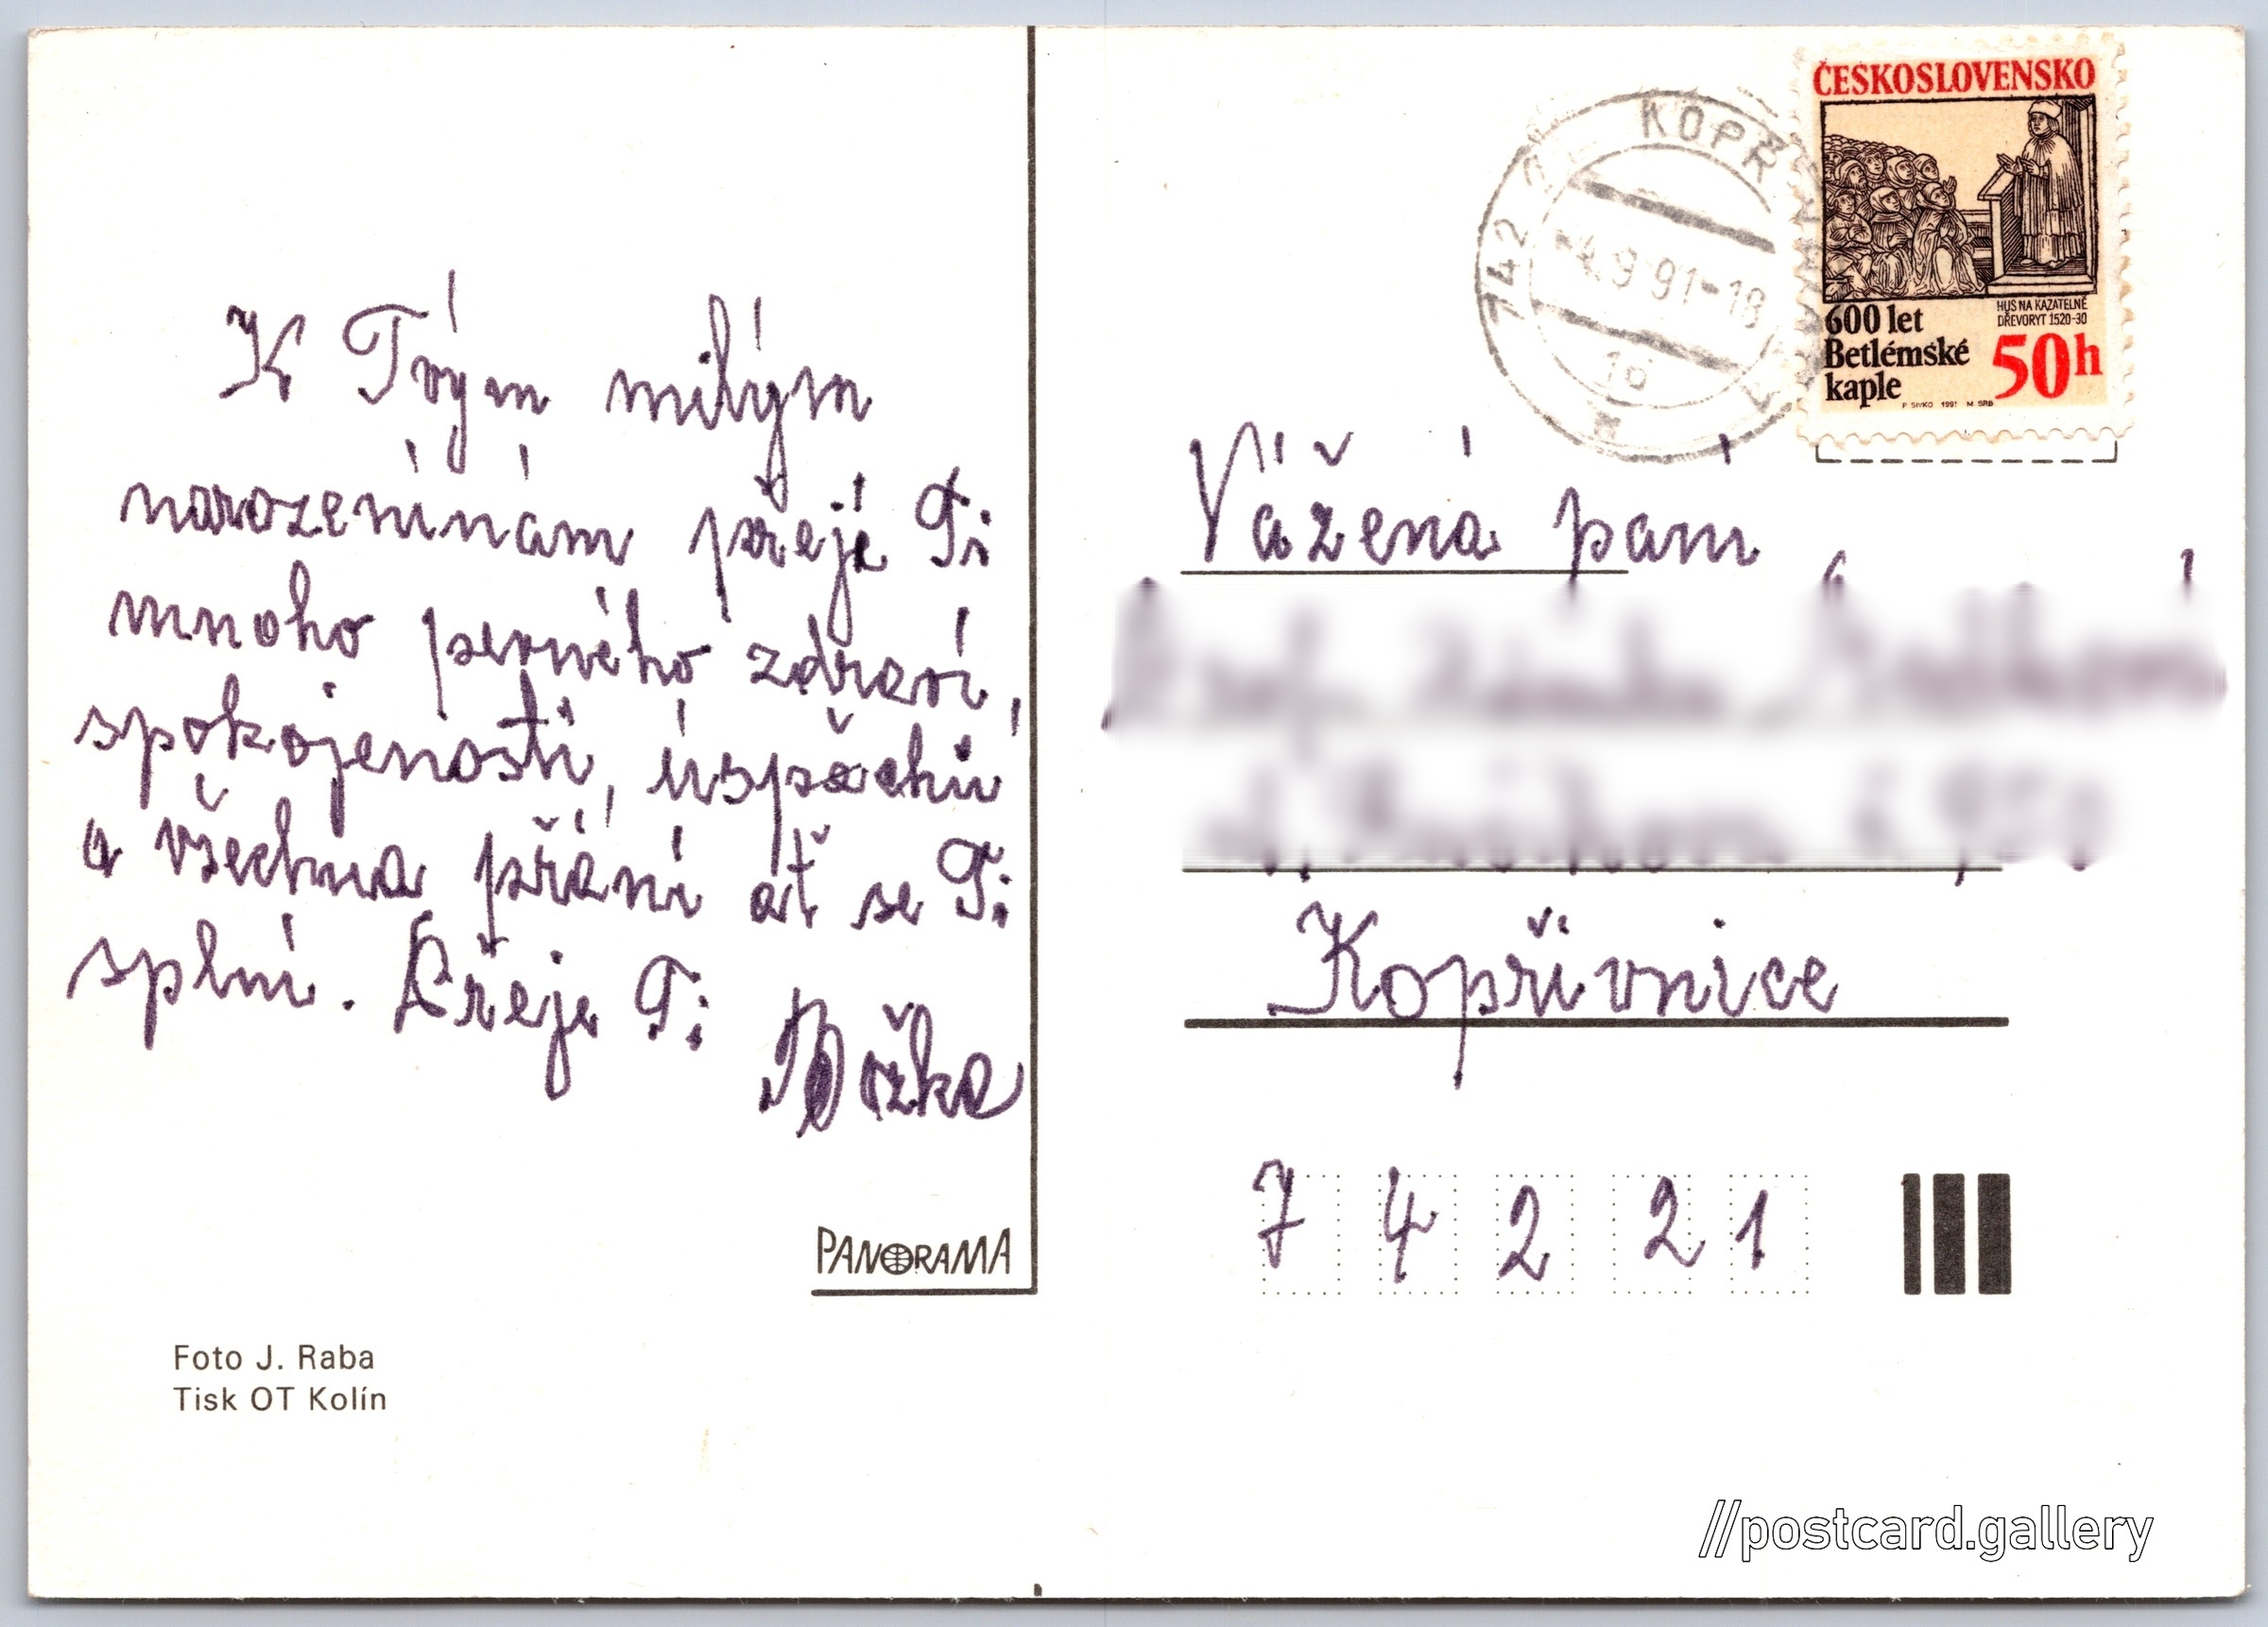 K Tvým milým
narozeninám přeje Ti
mnoho pevného zdraví,
spokojenosti, úspěchů
a všechna přání ať se Ti
splní. Přeje Ti
Božka
PANORAMA
Foto J. Raba
Tisk OT Kolín
ČESKOSLOVENSKO
HUS NA KAZATELNĚ
DŘEVORYT 1520-30
600 let
Betlémské
kaple
50h
P. SIVKO 1991 M. SRB
742 21 KOPŘIVNICE 1
-4.9.91-18
Vážená paní
Kopřivnice
7 4 2 2 1
//postcard.gallery